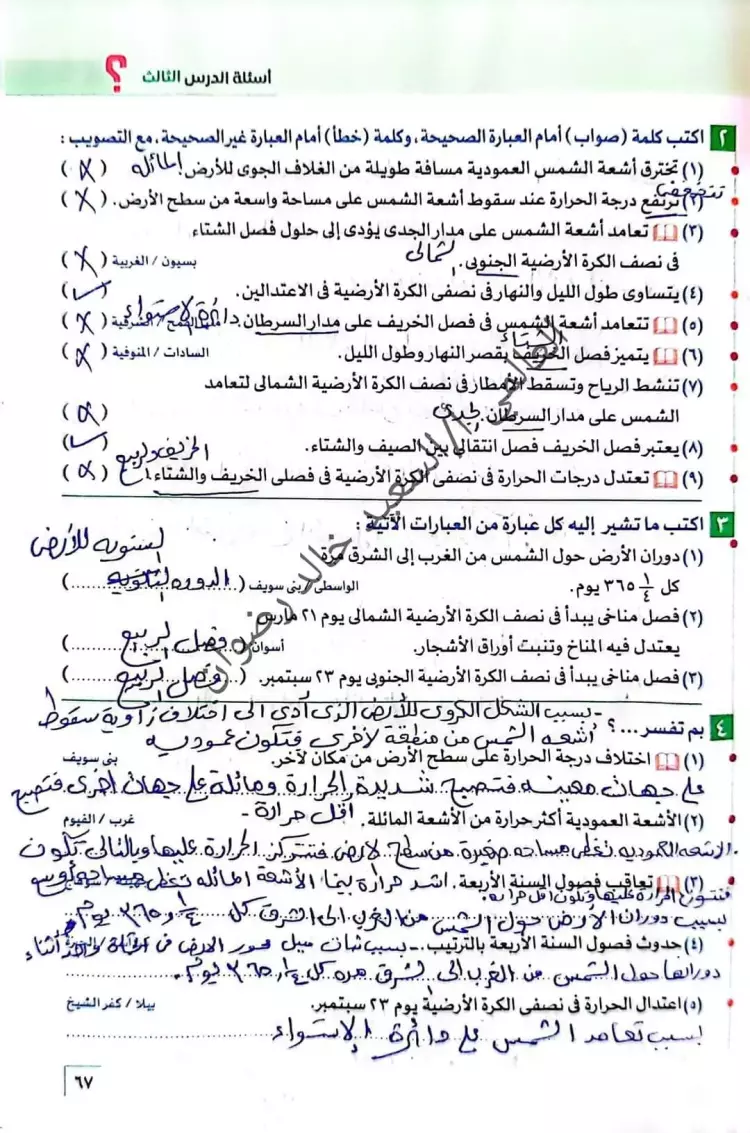 أسئلة الدرس الثالث ؟
٢ اكتب كلمة (صواب) أمام العبارة الصحيحة، وكلمة (خطأ) أمام العبارة غير الصحيحة، مع التصويب :
(١) تخترق أشعة الشمس العمودية مسافة طويلة من الغلاف الجوى للأرض. المائلة (X)
تنخفض
(٢) ترتفع درجة الحرارة عند سقوط أشعة الشمس على مساحة واسعة من سطح الأرض. (X)
(٣) تعامد أشعة الشمس على مدار الجدى يؤدى إلى حلول فصل الشتاء
فى نصف الكرة الأرضية الجنوبى. الشمالى بسيون / الغربية (X)
(٤) يتساوى طول الليل والنهار فى نصفى الكرة الأرضية فى الاعتدالين. (✓)
(٥) تتعامد أشعة الشمس فى فصل الخريف على مدار السرطان. دائرة الاستواء / الشرقية (X)
الشتاء
(٦) يتميز فصل الخريف بقصر النهار وطول الليل. السادات / المنوفية (X)
(٧) تنشط الرياح وتسقط الأمطار فى نصف الكرة الأرضية الشمالى لتعامد
الشمس على مدار السرطان. الجدى (X)
(٨) يعتبر فصل الخريف فصل انتقالى بين الصيف والشتاء. (✓)
الخريف والربيع
(٩) تعتدل درجات الحرارة فى نصفى الكرة الأرضية فى فصلى الخريف والشتاء. (X)
٣ اكتب ما تشير إليه كل عبارة من العبارات الآتية :
(١) دوران الأرض حول الشمس من الغرب إلى الشرق مرة
السنوية للأرض
كل ١/٤ ٣٦٥ يوم. الواسطى / بنى سويف (الدورة)
(٢) فصل مناخى يبدأ فى نصف الكرة الأرضية الشمالى يوم ٢١ مارس
يعتدل فيه المناخ وتنبت أوراق الأشجار. أسوان (فصل الربيع)
(٣) فصل مناخى يبدأ فى نصف الكرة الأرضية الجنوبى يوم ٢٣ سبتمبر. (فصل الربيع)
- بسبب الشكل الكروى للأرض الذى أدى الى اختلاف زاوية سقوط
٤ بم تفسر ...؟ أشعه الشمس من منطقة لأخرى فتكون عموديه
(١) اختلاف درجة الحرارة على سطح الأرض من مكان لآخر. بنى سويف
على جهات معينه فتصبح شديدة الحرارة ومائلة على جهات اخرى فتصبح
اقل حرارة -
(٢) الأشعة العمودية أكثر حرارة من الأشعة المائلة. غرب / الفيوم
الاشعه العموديه تغطى مساحه صغيرة من سطح الارض فتتركز الحرارة عليها وبالتالى تكون
(٣) تعاقب فصول السنة الأربعة. اشد حرارة بينما الأشعة المائله تغطى مساحه أوسع
فتتوزع الحرارة عليها وتكون اقل حرارة
بسبب دوران الأرض حول الشمس من الغرب الى الشرق كل ١/٤ ٣٦٥ يوم
(٤) حدوث فصول السنة الأربعة بالترتيب. - بسبب ثبات ميل محور الأرض فى أثناء
دورانها حول الشمس من الغرب الى الشرق مره كل ١/٤ ٣٦٥ يوم.
(٥) اعتدال الحرارة فى نصفى الكرة الأرضية يوم ٢٣ سبتمبر. بيلا / كفر الشيخ
بسبب تعامد الشمس على دائرة الإستواء
٦٧
أ/ السعيد خالد رضوان